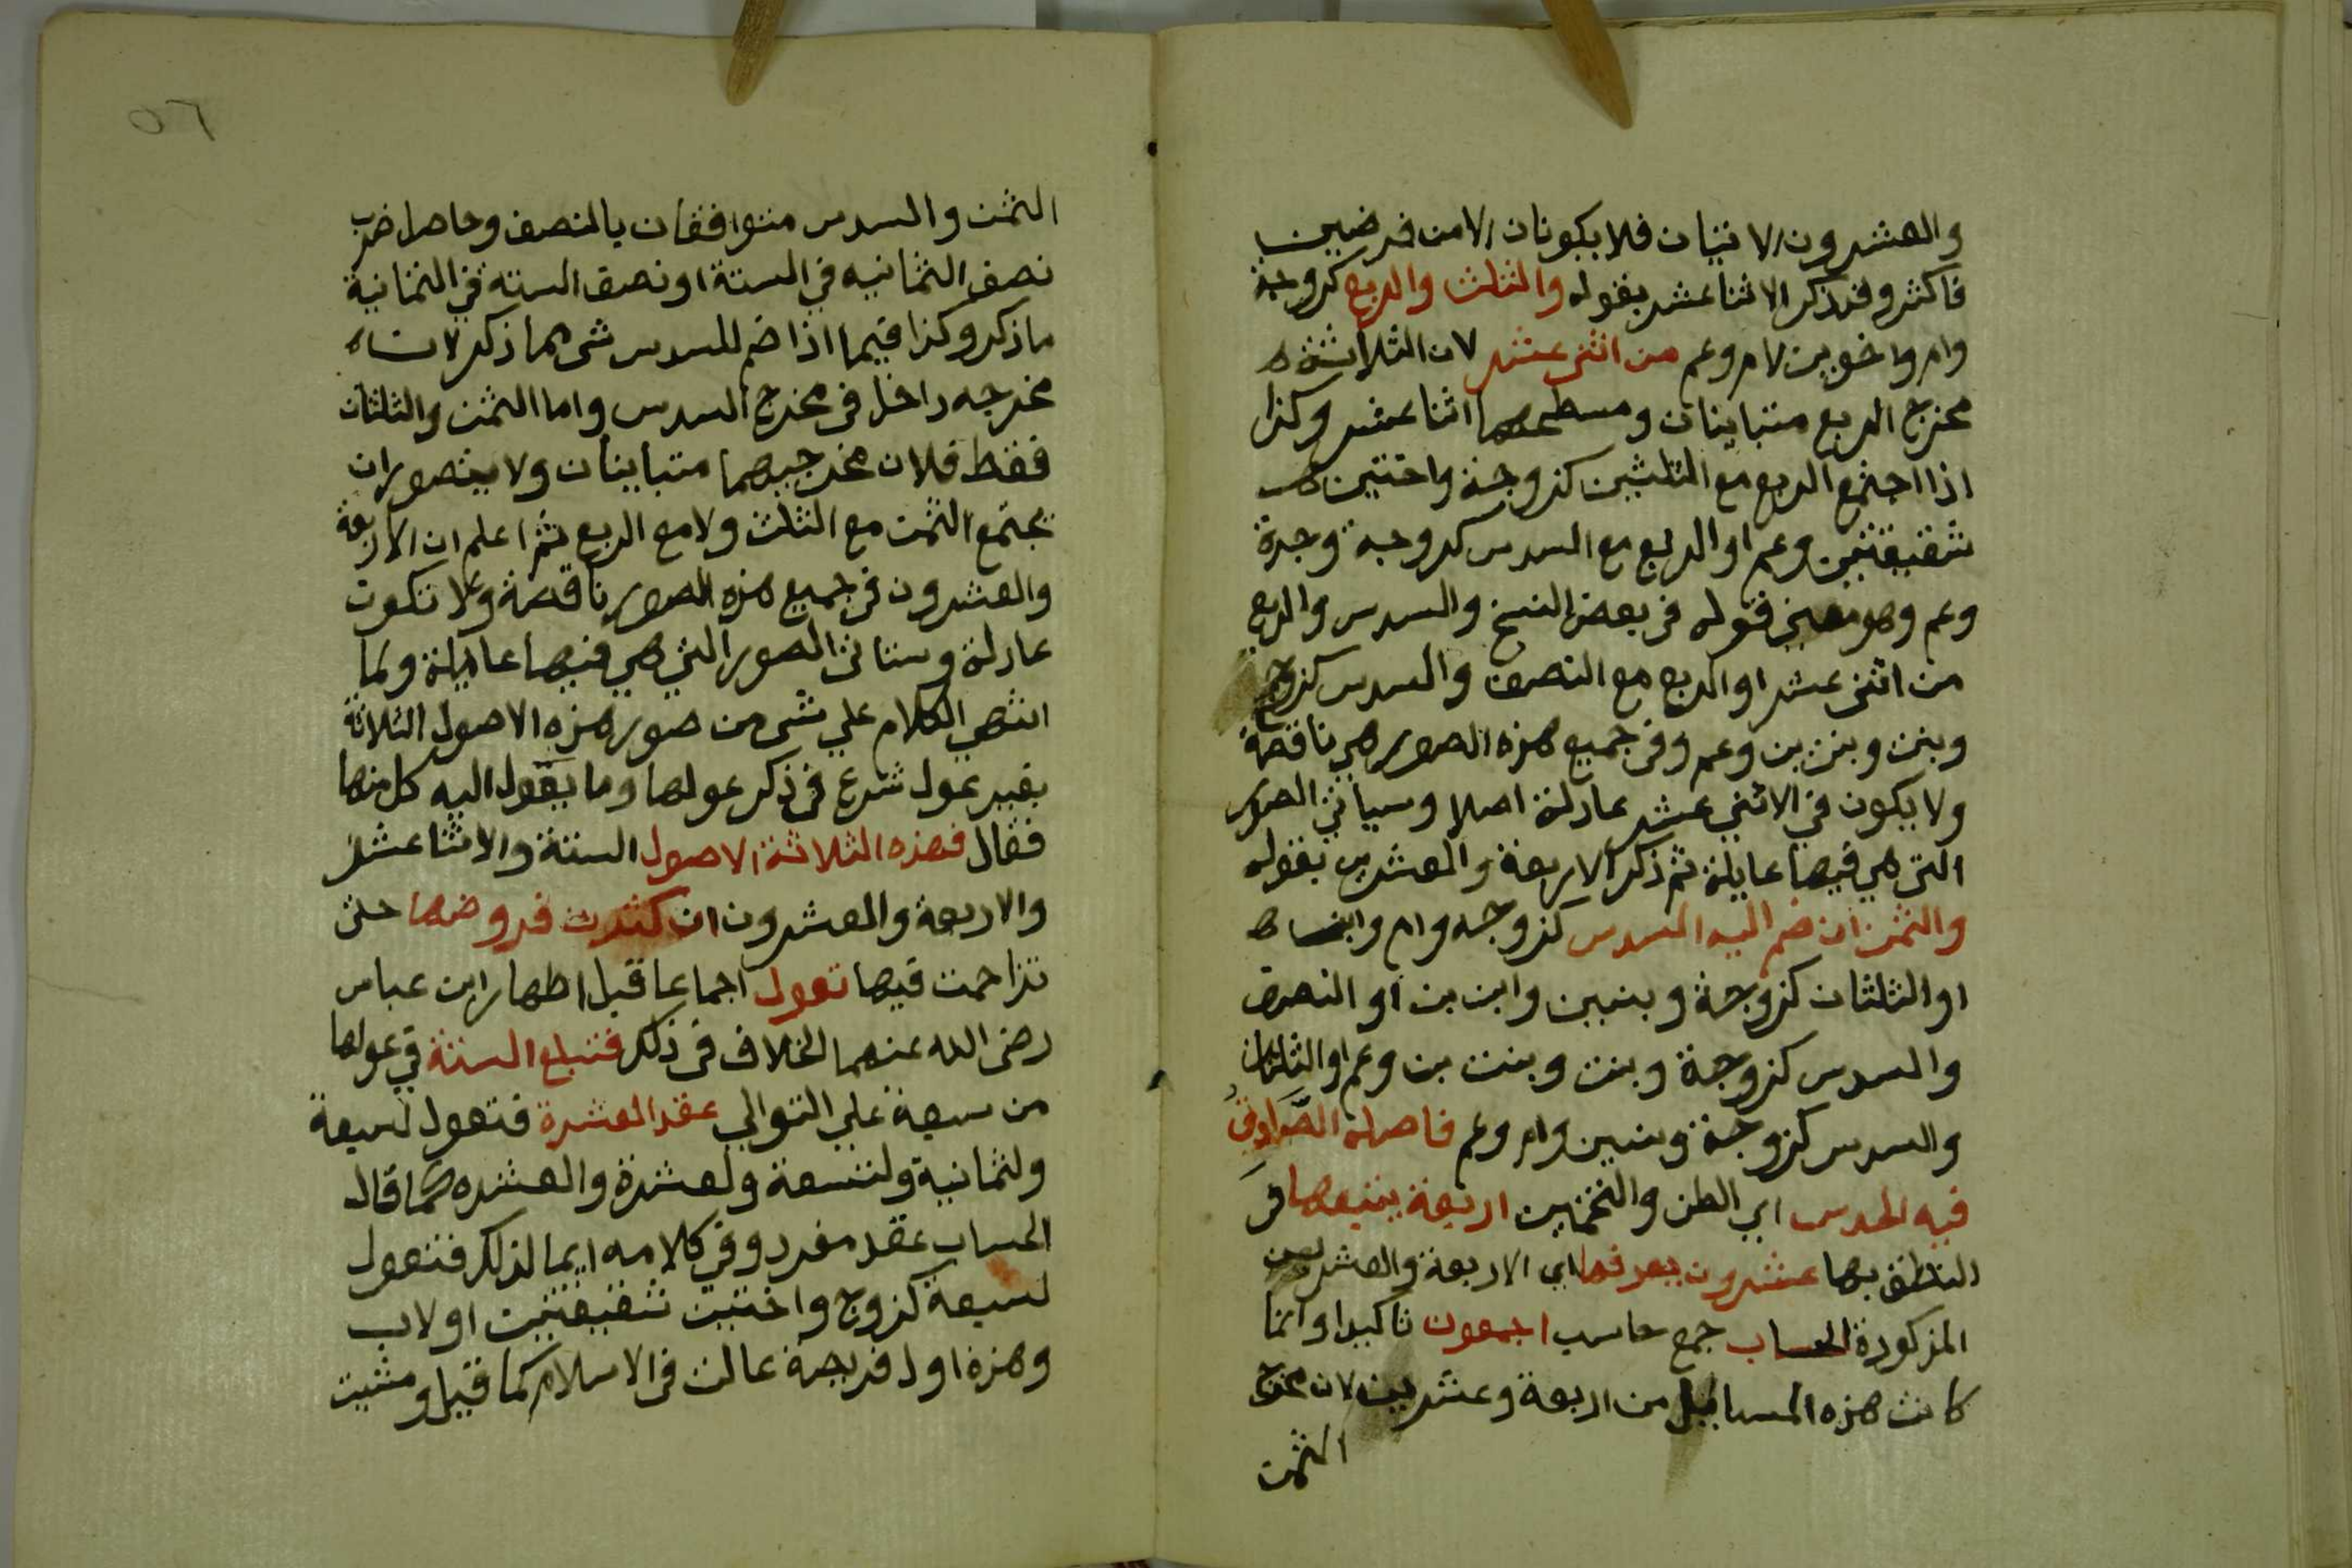 والعشرون الاتيان فلا يكونان الامن فرضين
فاكثر وقد ذكر الاثنا عشر بقوله والثلث والربع كزوجة
وام واخوين لام وعم من اثنى عشر لان الثلاثة
مخرج الربع متباينان ومسطحهما اثنا عشر وكذا
اذا اجتمع الربع مع الثلثين كزوجة واختين
شقيقتين وعم او الربع مع السدس كزوجة وجدة
وعم وهو معنى قوله فى بعض النسخ والسدس والربع
من اثنى عشر او الربع مع النصف والسدس كزوج
وبنت وبنت بن وعم وفى جميع هذه الصور هي ناقصة
ولا يكون في الاثني عشر عادلة اصلا وسياتي الصور
التى هي فيها عايلة ثم ذكر الاربعة والعشرين بقوله
والثمن ان ضم اليه السدس كزوجه وام وابن
او الثلثان كزوجة وبنتين وابن بن او النصف
والسدس كزوجة وبنت وبنت بن وعم او الثلثان
والسدس كزوجة وبنتين وام وعم فاصله الصادق
فيه الحدس اي الظن والتخمين اربعة يتبعها فى
النطق بها عشرون يعرفها اي الاربعة والعشرين
المذكورة الحساب جمع حاسب اجمعون تاكيدا وانما
كانت هذه المسايل من اربعة وعشرين لان مخرج
الثمن
٥٦
الثمن والسدس متوافقان بالنصف وحاصل ضرب
نصف الثمانيه في الستة او نصف الستة في الثمانية
ما ذكر وكذا فيما اذا ضم للسدس شى مما ذكر لان
مخرجه داخل فى مخرج السدس واما الثمن والثلثان
فقط فلان مخرجيهما متباينان ولا يتصور ان
يجتمع الثمن مع الثلث ولا مع الربع ثم اعلم ان الاربعة
والعشرون فى جميع هذه الصور ناقصة ولا تكون
عادلة وستاتى الصور التي هي فيها عايلة ولما
انتهي الكلام علي شى من صور هذه الاصول الثلاثة
بغير عول شرع فى ذكر عولها وما يعول اليه كل منها
فقال فهذه الثلاثة الاصول الستة والاثنا عشر
والاربعة والعشرون ان كثرت فروضها حتى
تزاحمت فيها تعول اجماعا قبل اظهار ابن عباس
رضى الله عنهما الخلاف فى ذلك فتبلغ الستة في عولها
من سبعة علي التوالي عقد العشرة فتعول لسبعة
ولثمانية ولتسعة ولعشرة والعشره كما قال
الحساب عقد مفرد وفى كلامه ايما لذلك فتعول
لسبعة كزوج واختين شقيقتين او لاب
وهذه اول فريضة عالت فى الاسلام كما قيل ومثيت